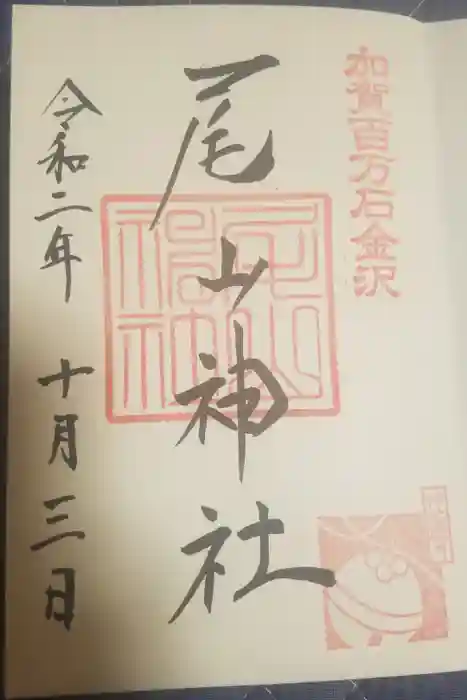 加賀百万石金沢
尾山神社
令和二年 十月三日